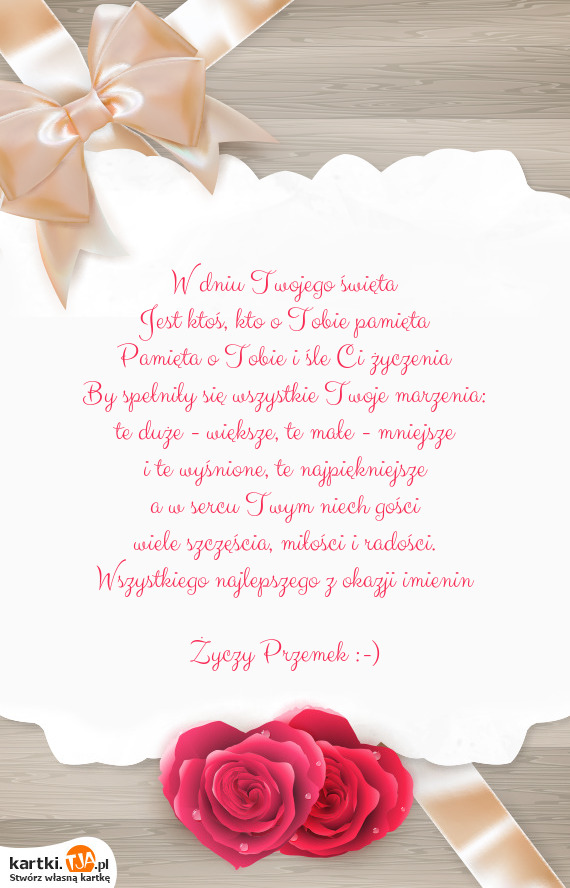 W dniu Twojego święta
Jest ktoś, kto o Tobie pamięta
Pamięta o Tobie i śle Ci życzenia
By spełniły się wszystkie Twoje marzenia:
te duże - większe, te małe - mniejsze
i te wyśnione, te najpiękniejsze
a w sercu Twym niech gości
wiele szczęścia, miłości i radości.
Wszystkiego najlepszego z okazji imienin
Życzy Przemek :-)
kartki.TJA.pl
Stwórz własną kartkę